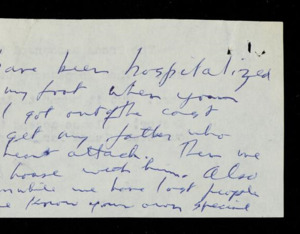 have been hospitalized
my foot when your
I got out of the cast
get my father who
heart attack. Then we
house with him. Also
we have lost people
know your own special